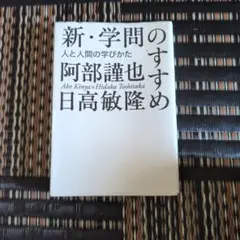 新・学問のすすめ
人と人間の学びかた
阿部謹也
Abe Kinya×Hidaka Toshitaka
日高敏隆